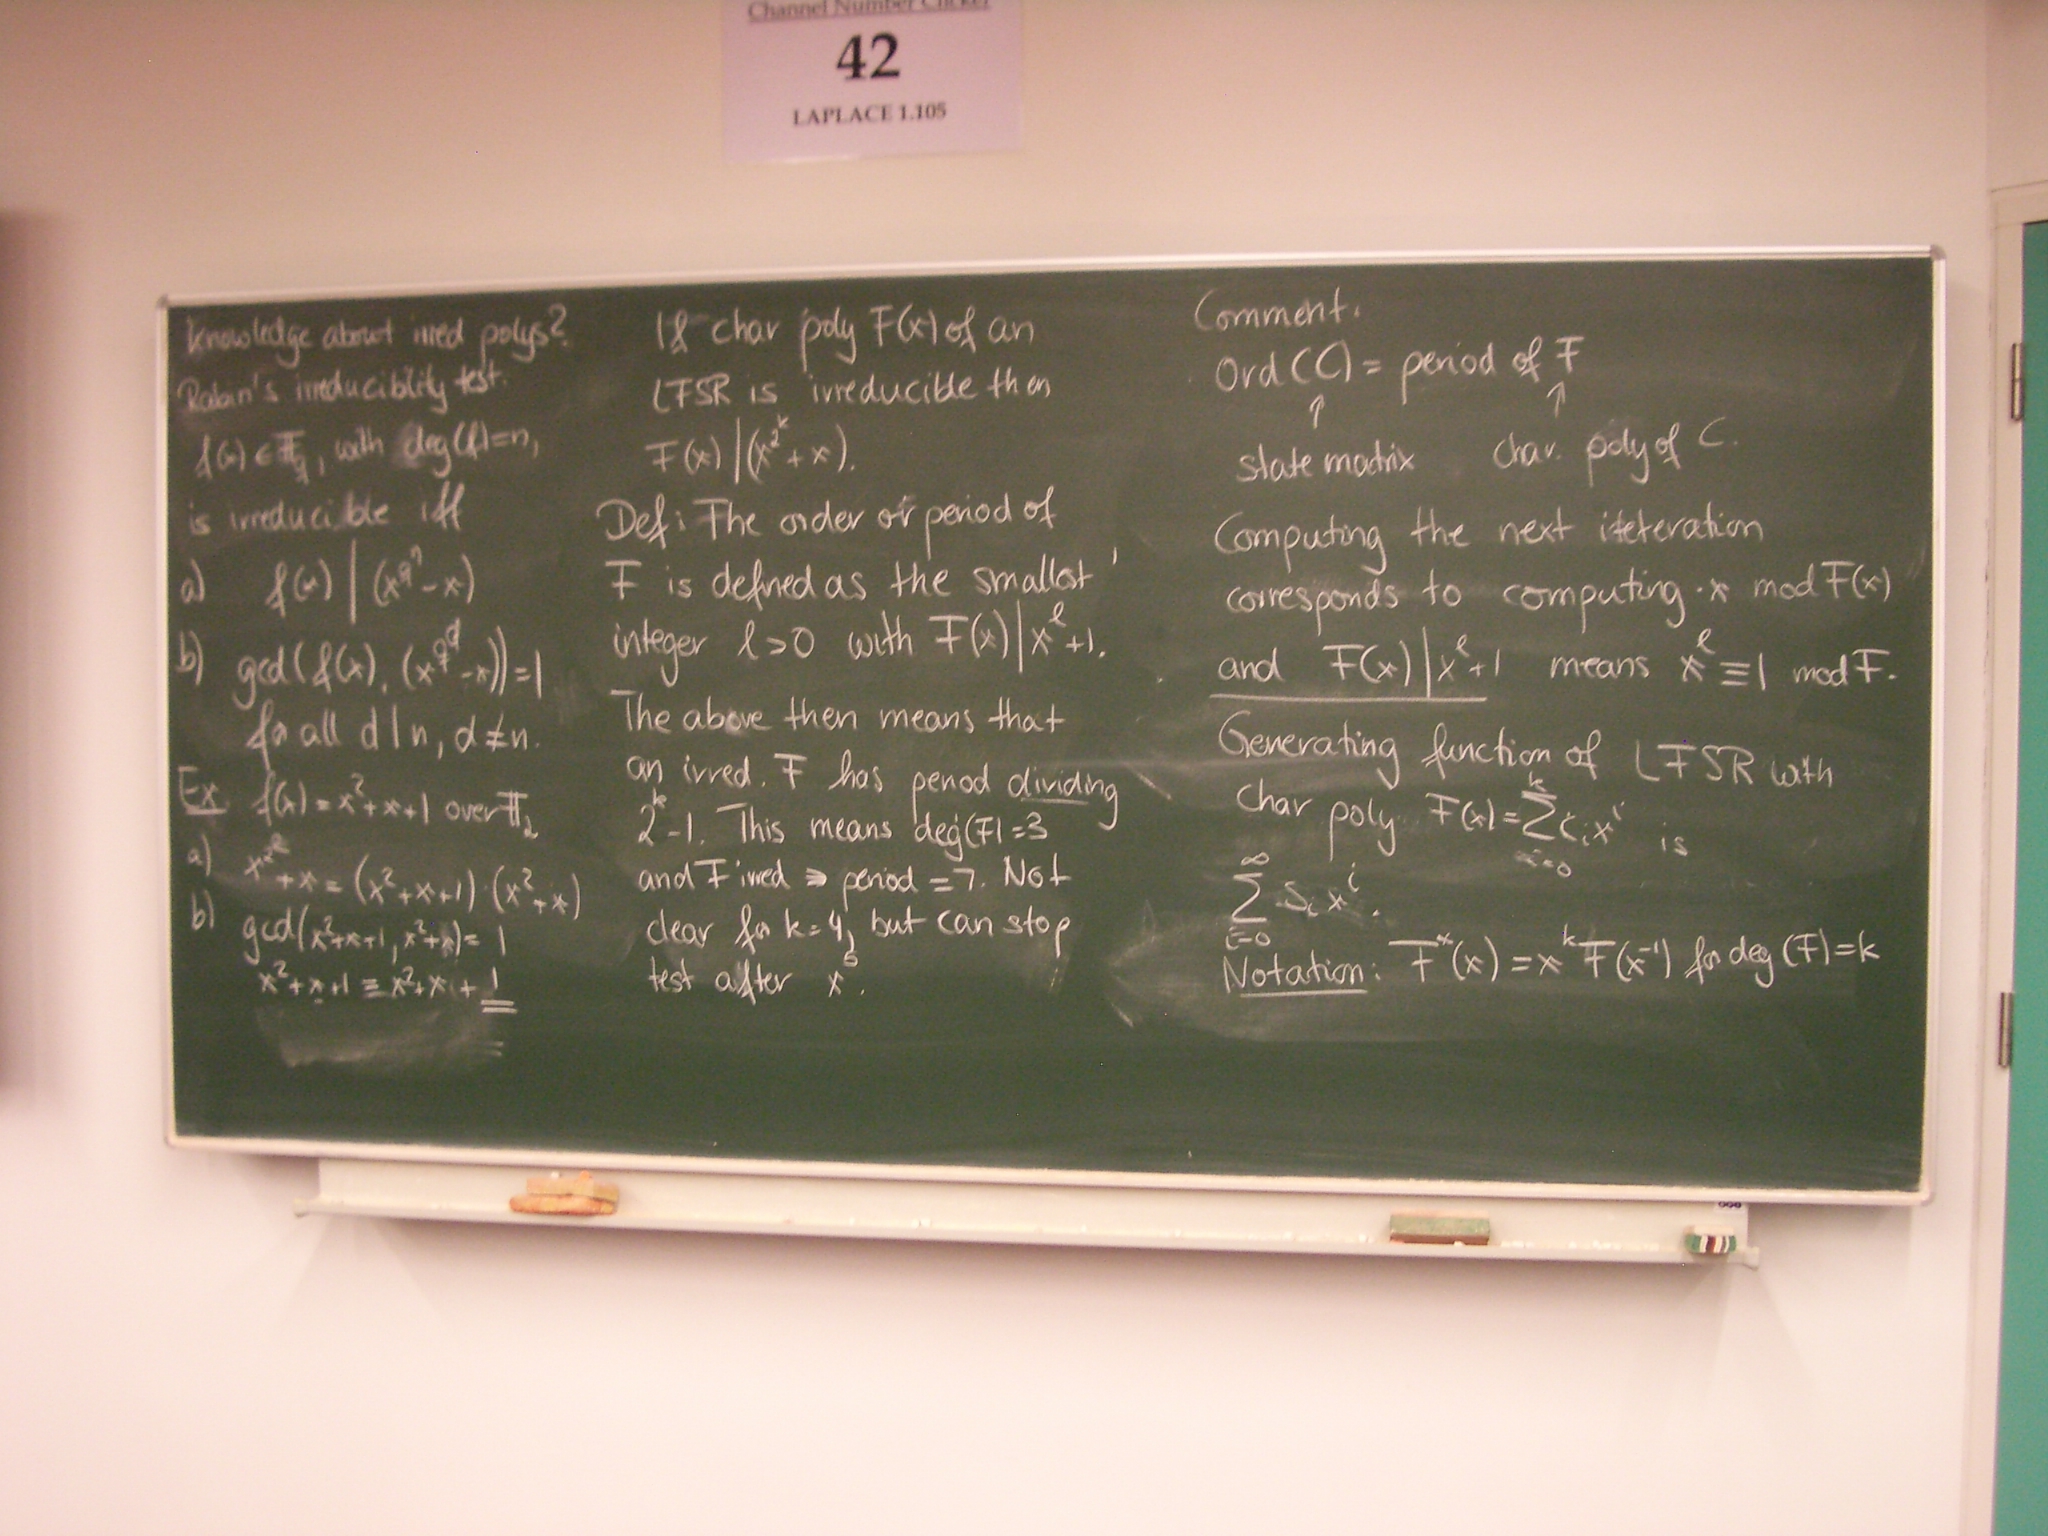 Channel Number Clicker
42
LAPLACE 1.105
Knowledge about irred polys?
Rabin's irreducibility test.
f(x) ∈ F_q, with deg(f)=n,
is irreducible iff
a) f(x) | (x^{q^n} - x)
b) gcd(f(x), (x^{q^d} - x)) = 1
for all d|n, d≠n.
Ex f(x) = x^2+x+1 over F_2
a) x^{2^2}+x = (x^2+x+1)·(x^2+x)
b) gcd(x^2+x+1, x^2+x) = 1
x^2+x+1 ≡ x^2+x+1
If char poly F(x) of an
LFSR is irreducible then
F(x) | (x^{2^k}+x).
Def: The order or period of
F is defined as the smallest
integer l>0 with F(x) | x^l+1.
The above then means that
an irred. F has period dividing
2^k-1. This means deg(F)=3
and F irred ⇒ period = 7. Not
clear for k=4, but can stop
test after x^5.
Comment.
Ord(C) = period of F
↑ ↑
state matrix char. poly of C.
Computing the next iteteration
corresponds to computing ·x mod F(x)
and F(x) | x^l+1 means x^l ≡ 1 mod F.
Generating function of LFSR with
char poly F(x) = ∑_{i=0}^{k} c_i x^i is
∑_{i=0}^{∞} s_i x^i.
Notation: F^*(x) = x^k F(x^{-1}) for deg(F)=k